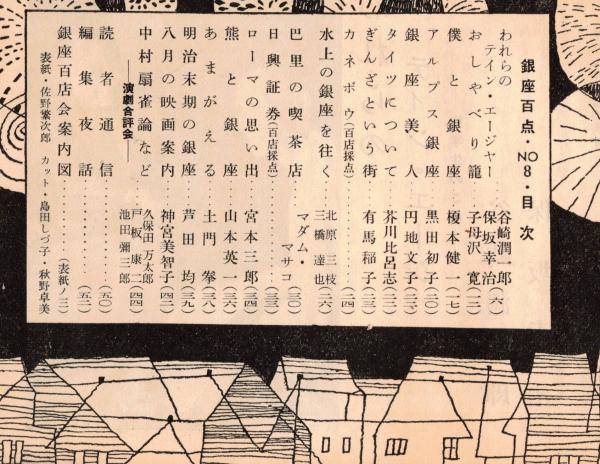 銀座百点・NO8・目次
われらのテイン・エージャー 谷崎潤一郎 保坂幸治 (六)
おしゃべり籠 子母沢寛 (一二)
僕と銀座 榎本健一 (一七)
アルプス銀座 黒田初子 (二〇)
銀座美人 円地文子 (二二)
タイツについて 芥川比呂志 (二二)
ぎんざという街 有馬稲子 (二三)
カネボウ(百店採点) (二四)
水上の銀座を往く 北原三枝 三橋達也 (二六)
巴里の喫茶店 マダム・マサコ (三〇)
日興証券(百店採点) (三三)
ローマの思い出 宮本三郎 (三四)
熊と銀座 山本英一 (三六)
あまがえる 土門拳 (三八)
明治末期の銀座 芦田均 (三九)
八月の映画案内 神宮美智子 (四二)
中村扇雀論など 久保田万太郎 戸板康二 池田彌三郎 (四四)
―演劇合評会―
読者通信 (五〇)
編集夜話 (五二)
銀座百店会案内図 (表紙ノ三)
表紙・佐野繁次郎 カット・島田しづ子・秋野卓美